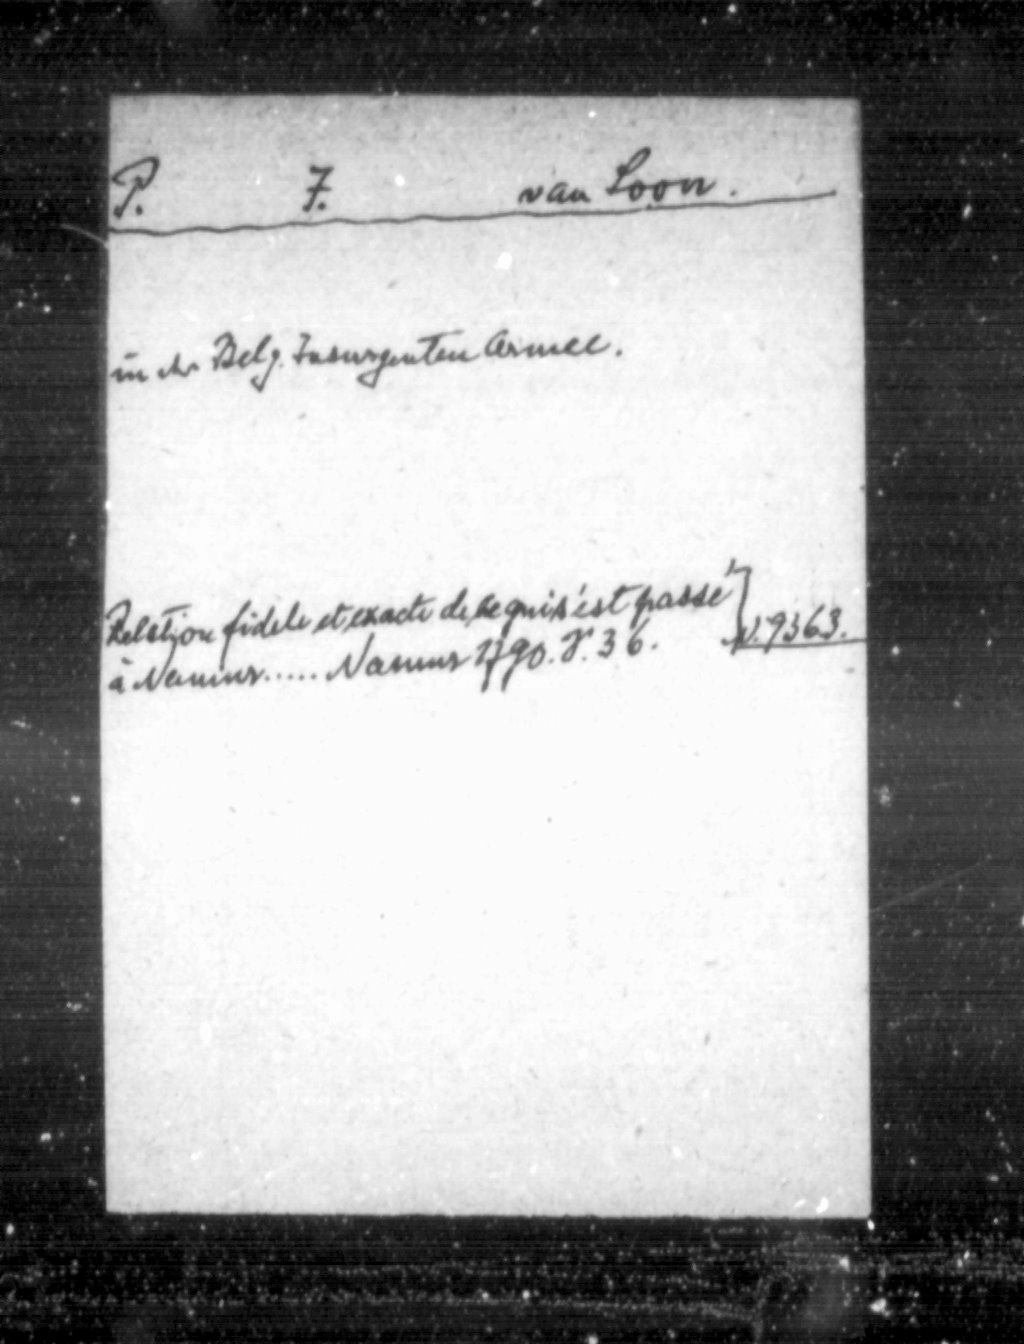 P. F. van Loon.
in der Belg. Insurgenten Armee.
Relation fidele et exacte de ce qui s'est passé
à Namur..... Namur 1790. 8°. 36. N. 9363.